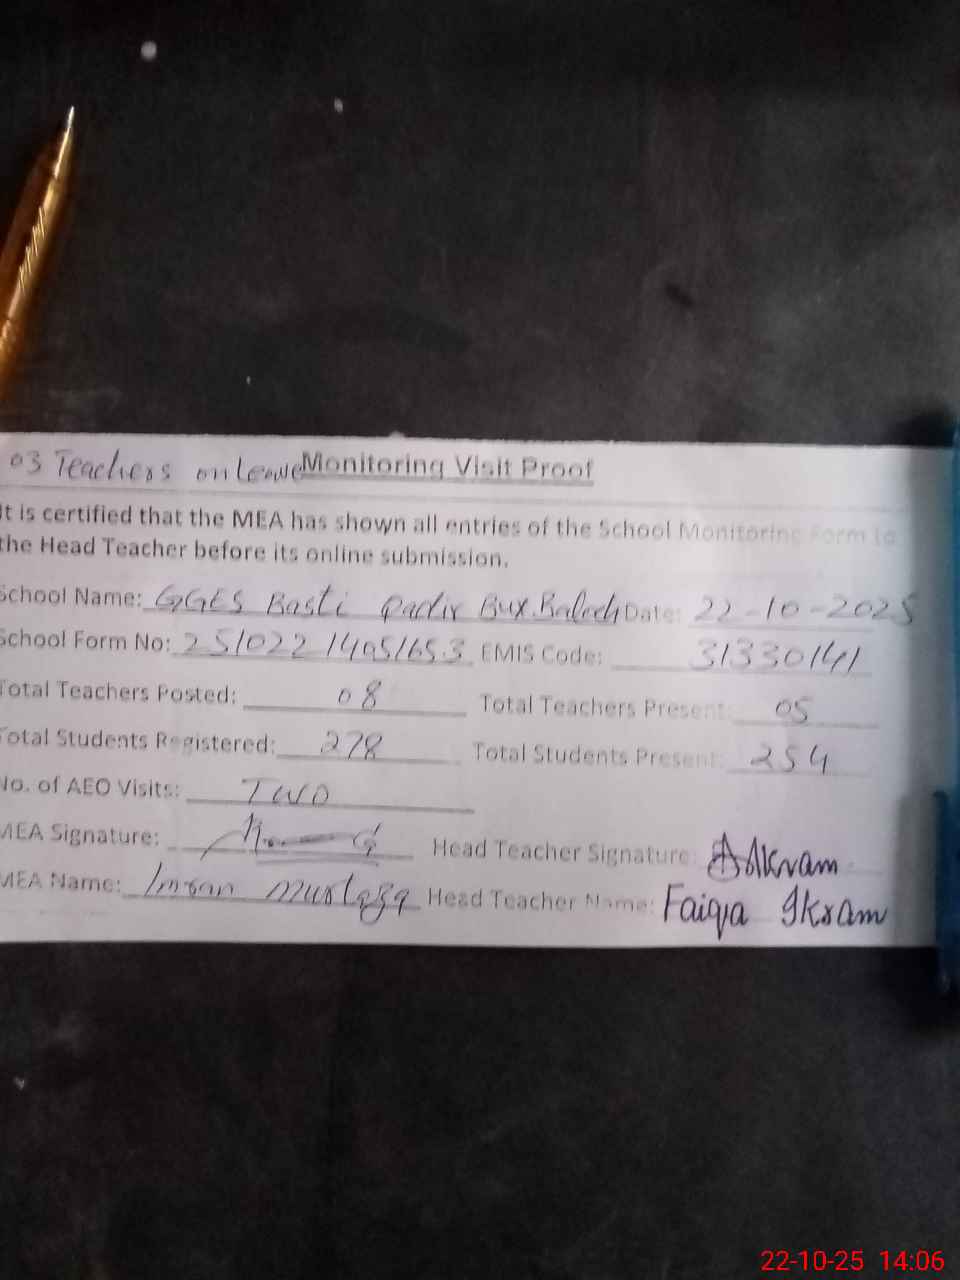 03 Teachers on Leave Monitoring Visit Proof
It is certified that the MEA has shown all entries of the School Monitoring Form to
the Head Teacher before its online submission.
School Name: GGES Basti Qadir Bux.Baloch Date: 22-10-2025
School Form No: 251022 14051653 EMIS Code: 31330141
Total Teachers Posted: 08 Total Teachers Present: 05
Total Students Registered: 278 Total Students Present: 254
No. of AEO Visits: Two
MEA Signature: Head Teacher Signature:
MEA Name: Imran Mustafa Head Teacher Name: Faiqa Ikram
22-10-25 14:06